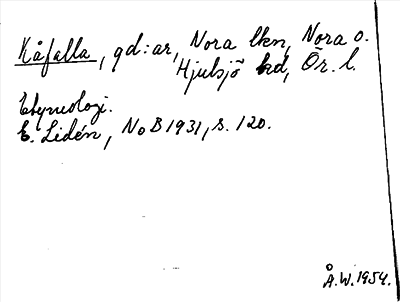 Kåfalla, gd:ar, Nora lkn, Nora o.
Hjulsjö hd, Ör. l.
Etymologi.
E. Lidén, NoB 1931, s. 120.
Å.W. 1954.